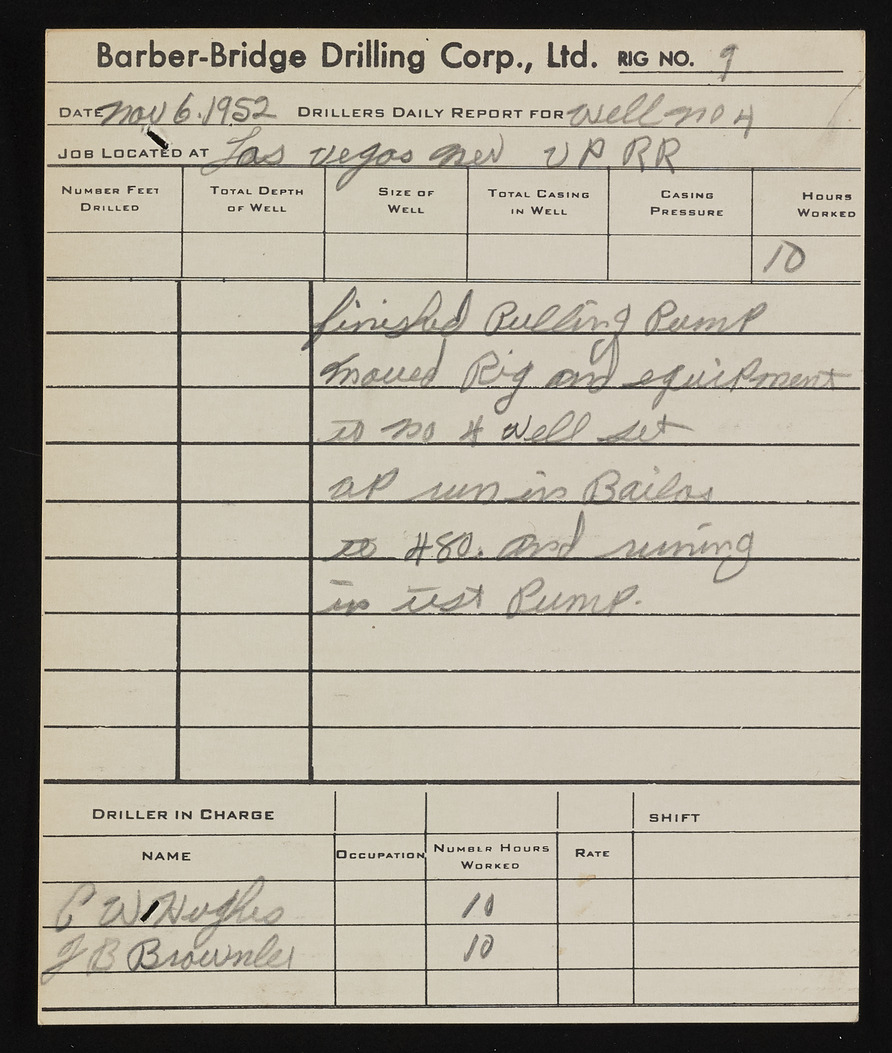 Barber-Bridge Drilling Corp., Ltd. RIG NO. 9
DATE Nov 6. 1952 DRILLERS DAILY REPORT FOR Well no 4
JOB LOCATED AT Las Vegas Nev U P RR
NUMBER FEET DRILLED TOTAL DEPTH OF WELL SIZE OF WELL TOTAL CASING IN WELL CASING PRESSURE HOURS WORKED
10
finished Pulling Pump
moved Rig and equipment
to no 4 well set
up run in Bailor
to 480. and runing
in test Pump.
DRILLER IN CHARGE SHIFT
NAME OCCUPATION NUMBER HOURS WORKED RATE
C W Hughes 10
J B Brownlee 10